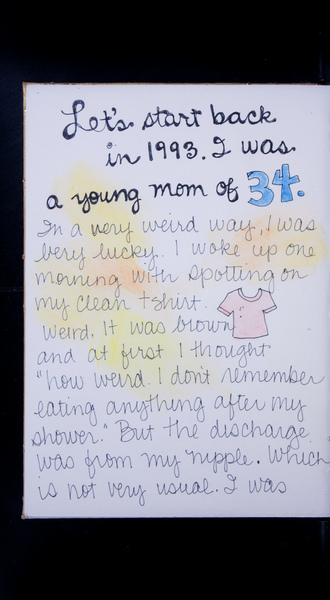 Let's start back
in 1993. I was
a young mom of 34.
In a very weird way, I was
very lucky. I woke up one
morning with spotting on
my clean t-shirt.
Weird. It was brown
and at first I thought
"how weird. I don't remember
eating anything after my
shower." But the discharge
was from my nipple. Which
is not very usual. I was